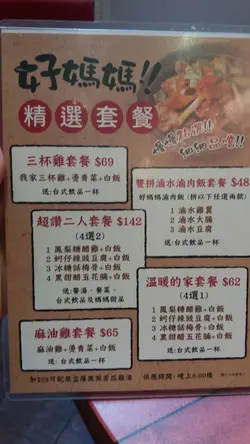 好媽媽!!
精選套餐
細細品嚐!!
三杯雞套餐 $69
我家三杯雞+燙青菜+白飯
送:台式飲品一杯
雙拼滷水滷肉飯套餐 $48
好媽媽滷肉飯 (拼以下任選兩款)
1 滷水雞翼
2 滷水大腸
3 滷水豆腐
送:台式飲品一杯
超讚二人套餐 $142
(4選2)
1 鳳梨糖醋雞+白飯
2 蚵仔辣豉豆腐+白飯
3 冰糖話梅骨+白飯
4 黑甜醋五花腩+白飯
送:餐湯、餐菜、
台式飲品及媽媽甜品
溫暖的家套餐 $62
(4選1)
1 鳳梨糖醋雞+白飯
2 蚵仔辣豉豆腐+白飯
3 冰糖話梅骨+白飯
4 黑甜醋五花腩+白飯
送:台式飲品一杯
麻油雞套餐 $65
麻油雞+燙青菜+白飯
送:台式飲品一杯
供應時間:晚上6:00後